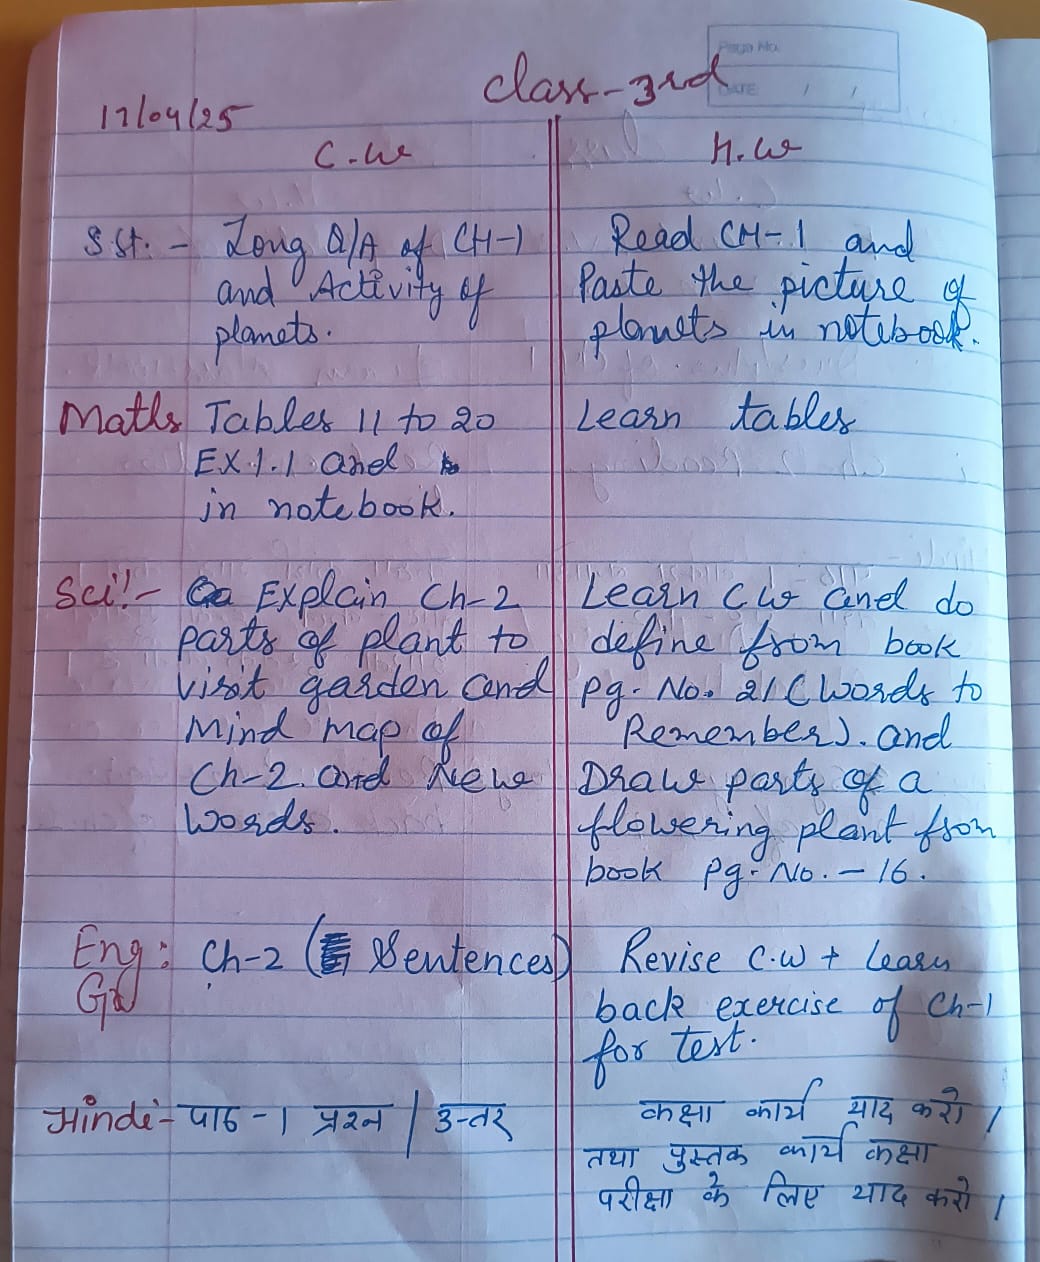 Page No.
DATE / /
Class-3rd
17/04/25
C.W H.W
S.St. - Long Q/A of CH-1 Read CH-1 and
and Activity of Paste the picture of
planets. planets in notebook.
Maths Tables 11 to 20 Learn tables
EX.1.1 and
in notebook.
Sci!- Explain Ch-2 Learn CW and do
parts of plant to define from book
visit garden and pg. No. 21 (Words to
Mind map of Remember). and
Ch-2. and New Draw parts of a
Words. flowering plant from
book pg. No. - 16.
Eng: Ch-2 (Sentences) Revise C.W + Learn
back exercise of Ch-1
for test.
Hindi- पाठ-1 प्रश्न / उत्तर कक्षा कार्य याद करो।
तथा पुस्तक कार्य कक्षा
परीक्षा के लिए याद करो।